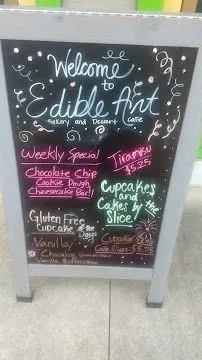 Welcome
to
Edible Art
Bakery and Dessert Cafe
Weekly Special
Chocolate Chip
Cookie Dough
Cheesecake Bar!!
Tiramisu
$5.25
Cupcakes
and
Cakes by the
Slice!
Gluten Free
Cupcake of the Day:
Vanilla/
Chocolate
Vanilla Buttercream
Cupcakes
Cake Slices